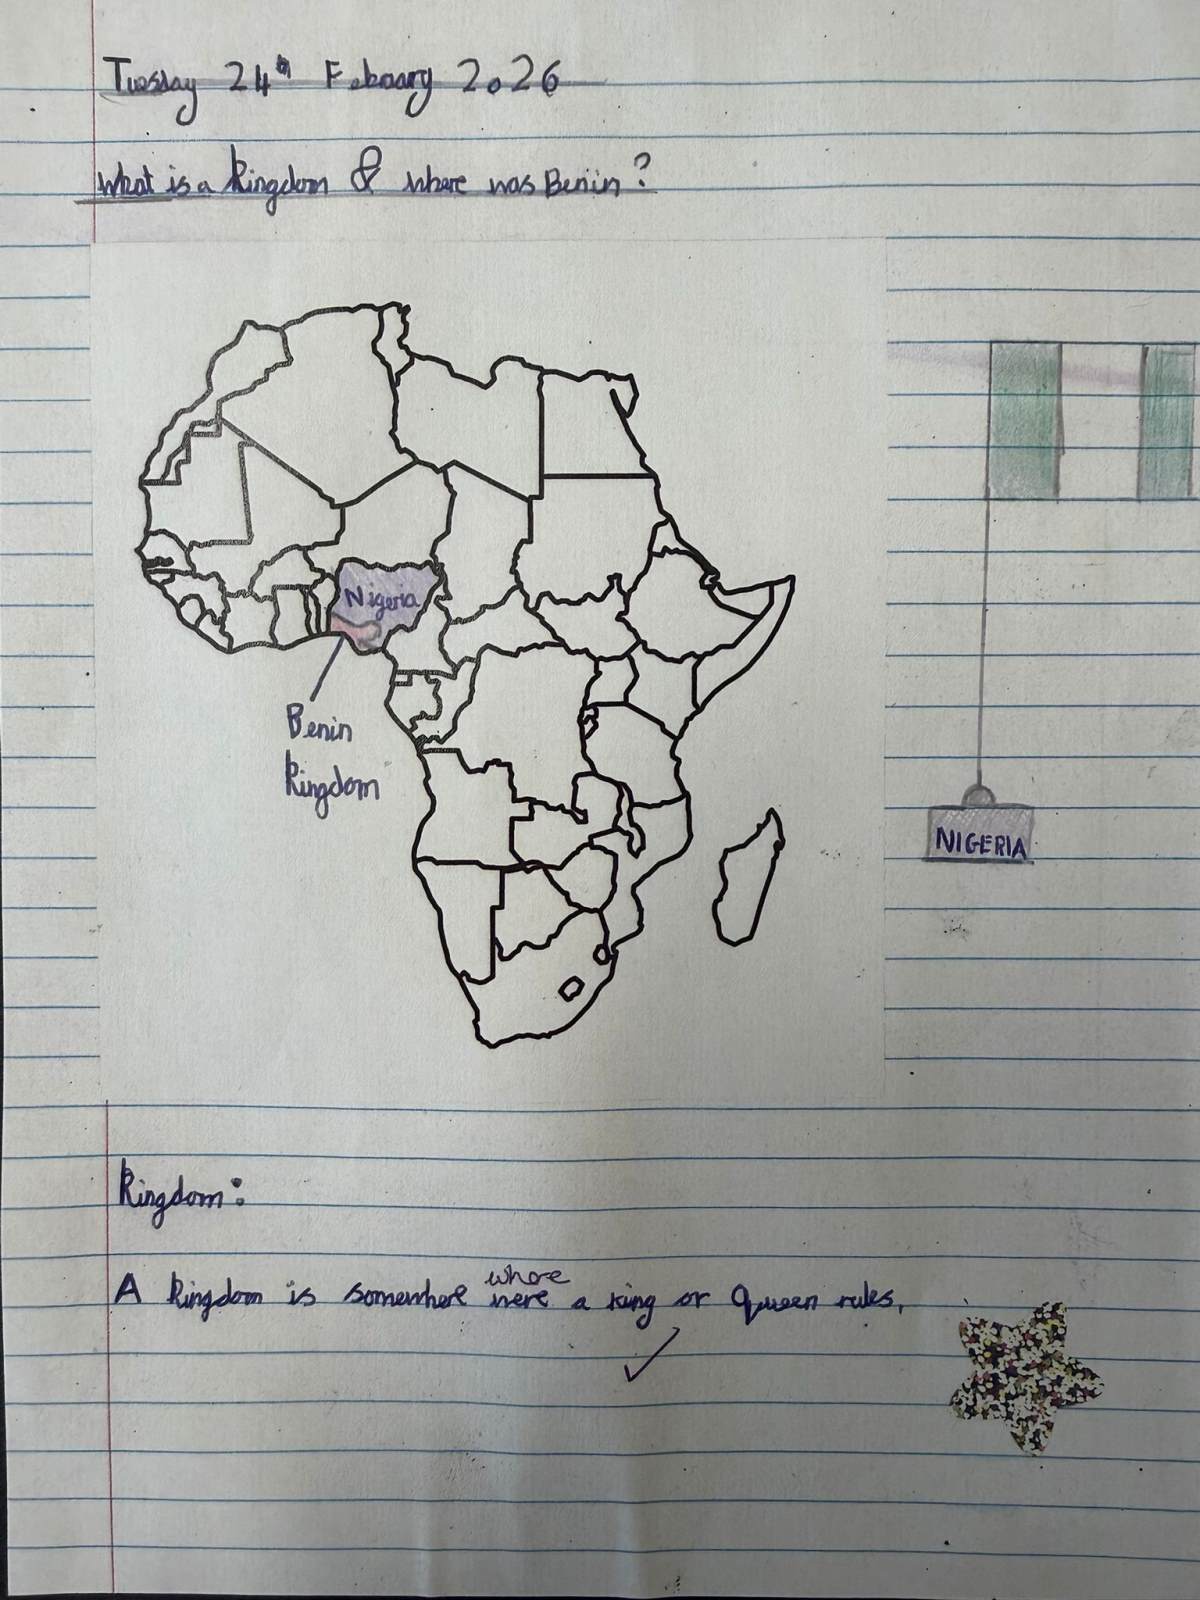 Tuesday 24th Febuary 2026
What is a kingdom & where was Benin?
Nigeria
Benin
kingdom
NIGERIA
kingdom:
where
A kingdom is somewhere were a king or queen rules.